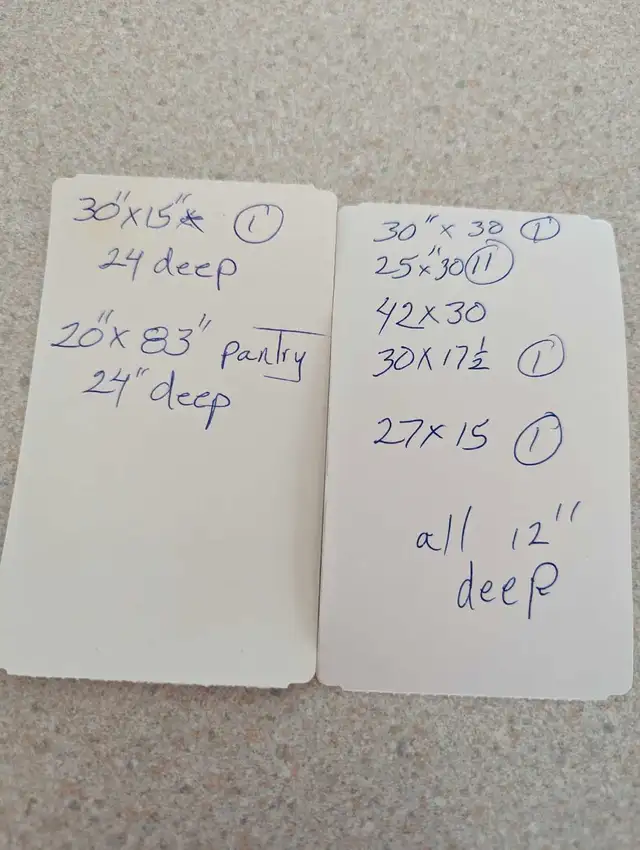 30" x 15" x 1
24 deep
20" x 83" pantry
24" deep
30" x 30 1
25 x "30 11
42 x 30
30 x 17 1/2 1
27 x 15 1
all 12"
deep